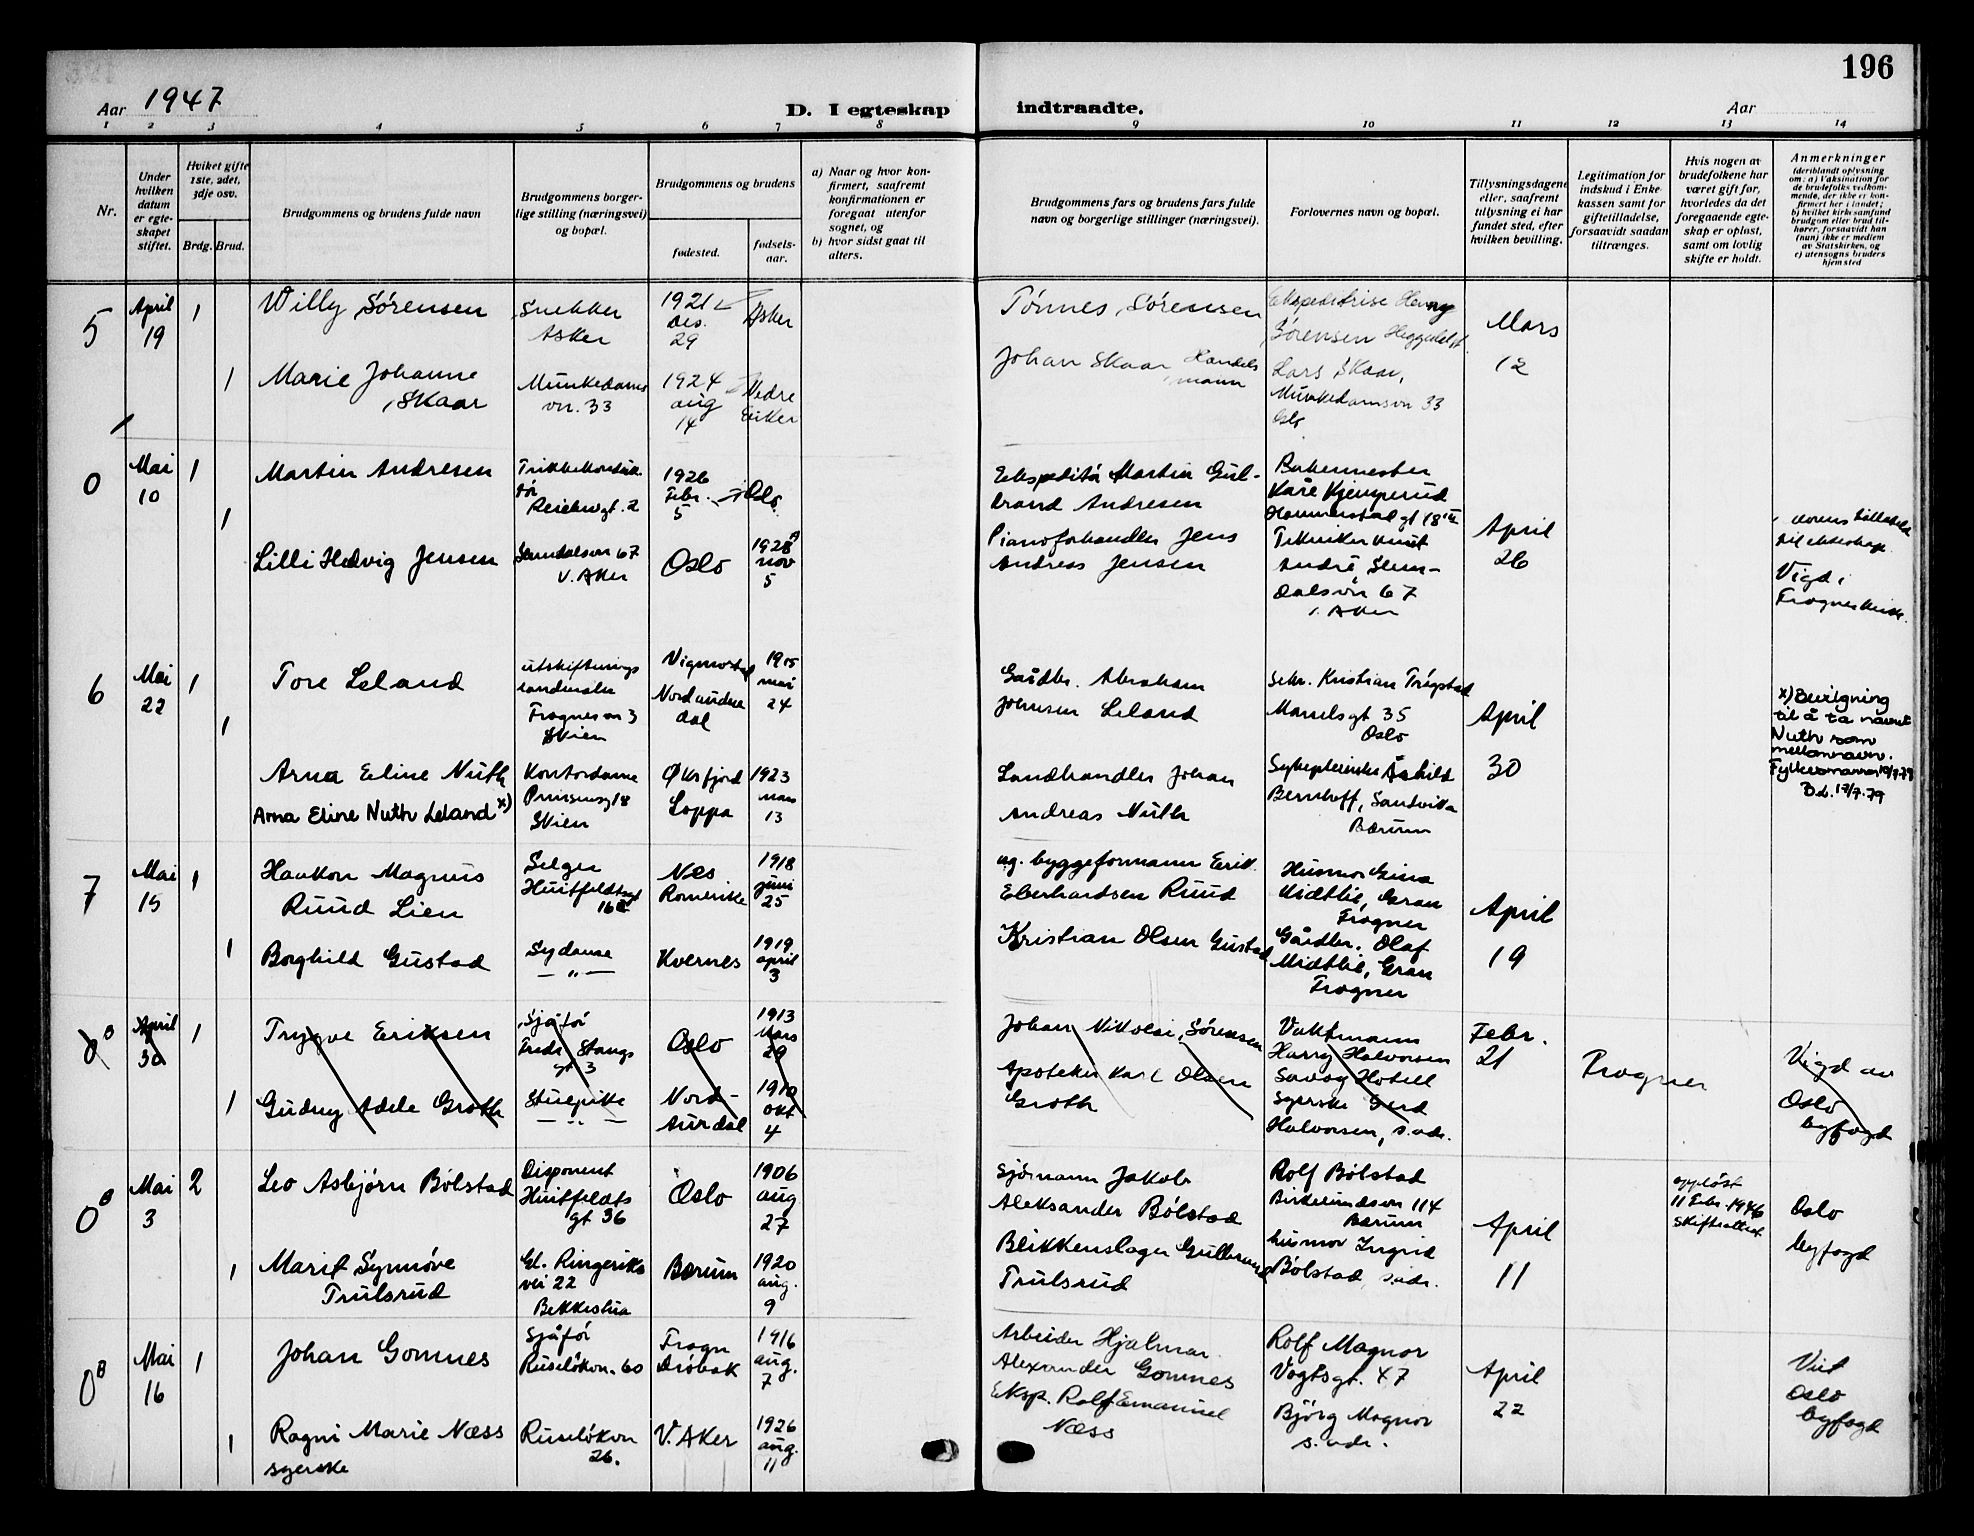 196
Aar 1947
D. I egteskap indtraadte.
Aar
1 2 3 4 5 6 7 8 9 10 11 12 13 14
Nr.
Under
hvilken
datum
er egte-
skapet
stiftet.
Hviket gifte
1ste, 2det,
3dje osv.
Brdg. Brud.
Brudgommens og brudens fulde navn
Brudgommens borger-
lige stilling (næringsvei)
og bopæl.
Brudgommens og brudens
fødested.
fødsels-
aar.
a) Naar og hvor kon-
firmert, saafremt
konfirmationen er
foregaat utenfor
sognet, og
b) hvor sidst gaat til
alters.
Brudgommens fars og brudens fars fulde
navn og borgerlige stillinger (næringsvei).
Forlovernes navn og bopæl.
Tillysningsdagene
eller, saafremt
tillysning ei har
fundet sted, efter
hvilken bevilling.
Legitimation for
indskud i Enke-
kassen samt for
giftetilladelse,
forsaavidt saadan
tiltrænges.
Hvis nogen av
brudefolkene har
været gift før,
hvorledes da det
foregaaende egte-
skap er opløst,
samt om lovlig
skifte er holdt.
Anmerkninger
(deriblandt oplysning
om: a) Vaksination for
de brudefolks vedkom-
mende, der ikke er kon-
firmert her i landet;
b) hvilket kirkesamfund
brudgom eller brud til-
hører, forsaavidt han
(hun) ikke er medlem
av Statskirken, og
c) utensogns bruders
hjemsted
5
April
19
1
Willy Sørensen
Snekker
Asker
1921
des.
29
Asker
Tønnes Sørensen
Ekspeditrise Henny
Sørensen
Mars
12
1
Marie Johanne
Skaar
Munkedams
vn. 33
1924
aug
14
Nedre
Eiker
Johan Skaar Handels
mann
Lars Skaar,
Munkedamsvn 33
Oslo
0
Mai
10
1
Martin Andresen
Trikkekonduk-
tør
gt. 2
1926
Febr.
5
Oslo
Ekspeditør Martin Gul-
brand Andresen
Bakermester
Kåre Kjemperud
gt 18 III
April
26
1
Lilli Hedvig Jensen
67
V. Aker
Oslo
1928
nov
5
Pianoforhandler Jens
Andreas Jensen
Tekniker Knut
André Slem-
dalsvn 67
V. Aker
til ekteskap.
Vigd i
Frogner kirke.
6
Mai
22
1
Tore Leland
utskiftnings
landmåler
Frognervn 3
Skien
Vigmostad
1915
mai
24
Gårdbr. Abraham
Johnsen Leland
Sekr. Kristian Trøgstad
gt 35
Oslo
April
30
1
Arna Eline Nuth
Arna Eline Nuth Leland x)
Kontordame
Prinsensg 18
Skien
Øksfjord
Loppa
1923
mars
13
Landhandler Johan
Andreas Nuth
Sykepleierske Åshild
Bernhoff, Sandvika
Bærum
x) Bevilgning
til å ta navnet
Nuth som
mellomnavn.
7
Mai
15
1
Haakon Magnus
Ruud Lien
Selger
Huitfeldtsgt
16
Nes
Romerike
1918
juni
25
ug. byggeformann Erik
Eberhardsen Ruud
Husmor Gina
Midtlie, Gran
Frogner
April
19
1
Borghild Gustad
Sydame
— " —
Kvernes
1919
april
3
Kristian Olsen Gustad
Gårdbr. Olaf
Midtlie, Gran
Frogner
0 B
April
30
1
Trygve Eriksen
Sjåfør
Fredr. Stangs
gt 3
Oslo
1913
Mars
29
Johan Nikolai Sørensen
Vaktmann
Harry Halvorsen
Savoy Hotell
Febr.
21
Frogner
Vigd av
Oslo
byfogd
1
Gudny Adele Groth
Stuepike
— " —
Nord-
Aurdal
1910
okt
4
Apoteker Karl Olsen
Groth
Syerske Gerd
Halvorsen, s.adr.
0 B
Mai
3
2
Leo Asbjørn Bølstad
Disponent
Huitfeldts
gt 36
Oslo
1906
aug
27
Sjømann Jakob
Aleksander Bølstad
Rolf Bølstad
114
Bærum
April
11
oppløst
11 Febr. 1946
skifteattest
Oslo
byfogd
1
Marit Synnøve
Trulsrud
Gl. Ringeriks
vei 22
Bekkestua
Bærum
1920
aug.
9
Blikkenslager Gulbrand
Trulsrud
husmor Ingrid
Bølstad, s.adr.
0 B
Mai
16
1
Johan Gomnes
Sjåfør
Ruseløkvn. 60
Frogn
Drøbak
1916
aug.
7
Arbeider Hjalmar
Alexander Gomnes
Rolf Magnor
Vogtsgt. 47
April
22
Viet
Oslo
byfogd
1
Ragni Marie Næss
syerske
Ruseløkvn
26.
V. Aker
1926
aug.
11
Eksp. Rolf Emanuel
Næss
Bjørg Magnor
s. adr.